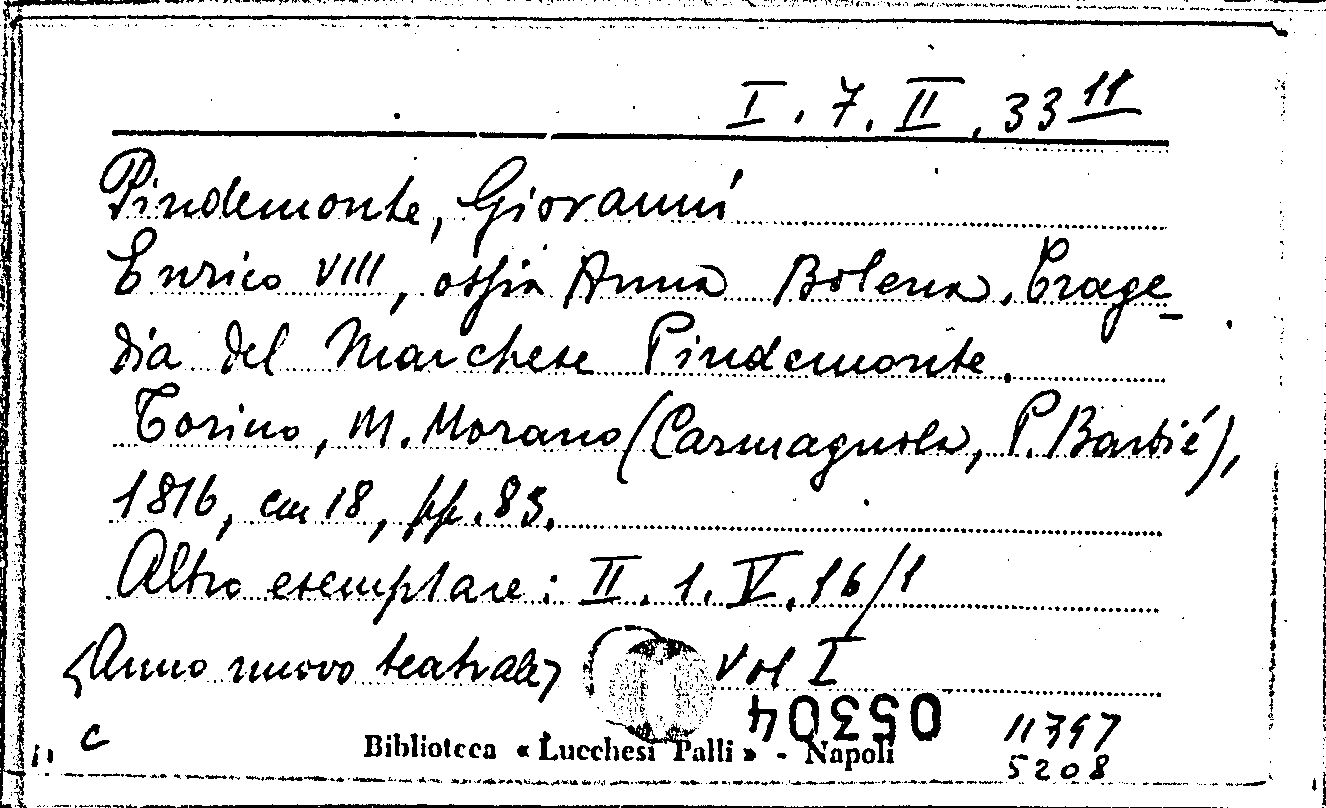 I. 7. II. 33 11
Pindemonte, Giovanni
Enrico VIII, ossia Anna Bolena. Trage-
dia del Marchese Pindemonte.
Torino, M. Morano (Carmagnola, P. Barbié),
1816, cm 18, pp. 83.
Altro esemplare: II. 1. V. 16/1
<Anno nuovo teatrale> vol I
05304
c
Biblioteca « Lucchesi Palli » - Napoli
5208